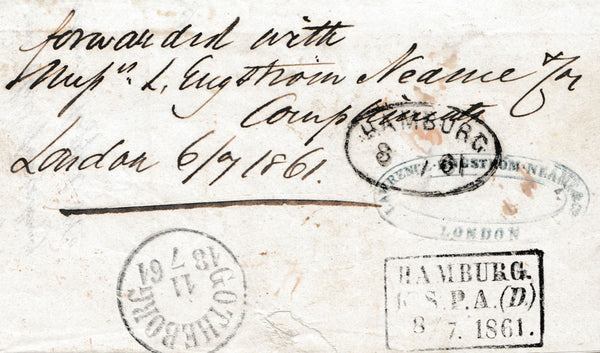 forwarded with
Messrs. L. Engström Neame & Co
Compliments
London 6/7 1861.
HAMBURG
8 / 61
LAWRENCE·ENGSTROM·NEAME & Co
LONDON
GOTHEBORG
11
13 7 61
HAMBURG.
K. S. P. A. (D)
8/7. 1861.